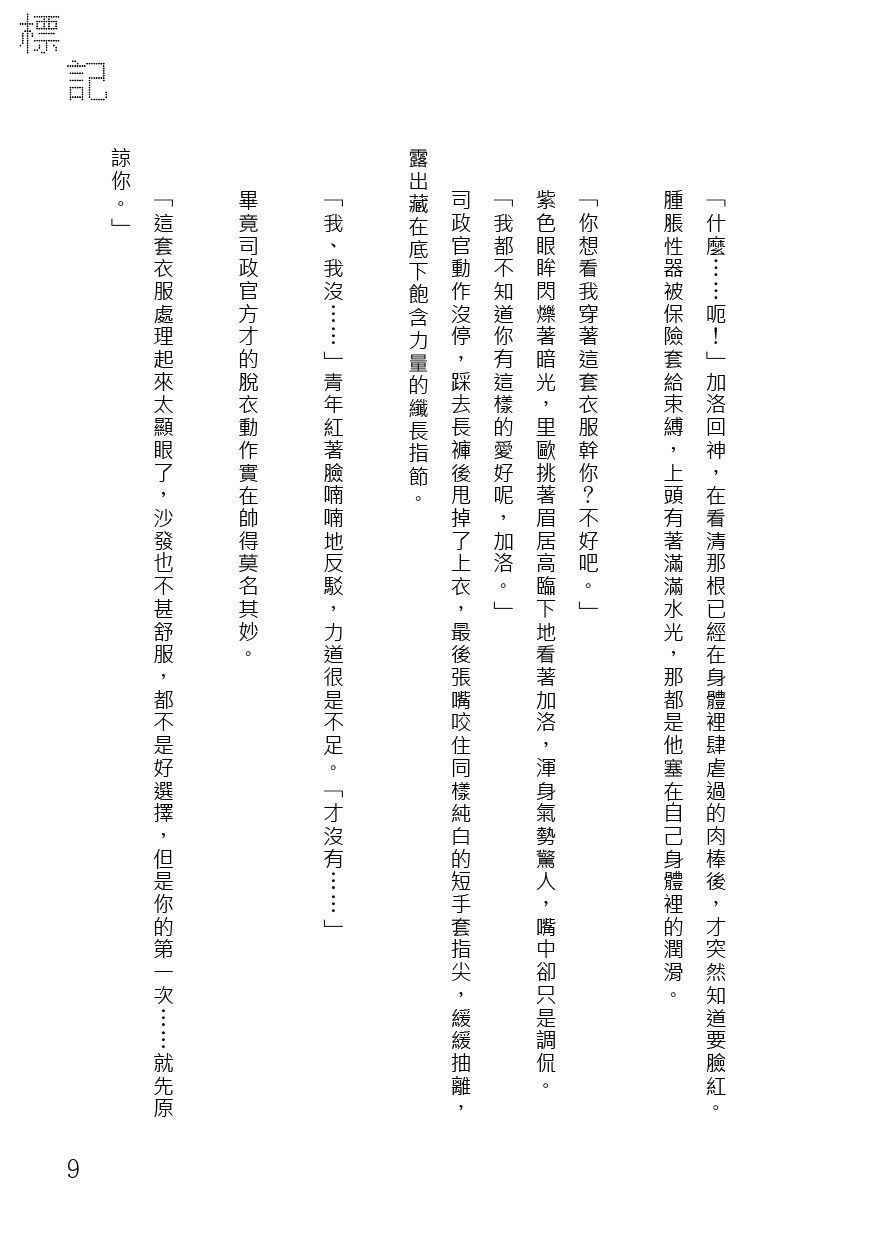 標記
「什麼……呃！」加洛回神，在看清那根已經在身體裡肆虐過的肉棒後，才突然知道要臉紅。
腫脹性器被保險套給束縛，上頭有著滿滿水光，那都是他塞在自己身體裡的潤滑。
「你想看我穿著這套衣服幹你？不好吧。」
紫色眼眸閃爍著暗光，里歐挑著眉居高臨下地看著加洛，渾身氣勢驚人，嘴中卻只是調侃。
「我都不知道你有這樣的愛好呢，加洛。」
司政官動作沒停，踩去長褲後甩掉了上衣，最後張嘴咬住同樣純白的短手套指尖，緩緩抽離，
露出藏在底下飽含力量的纖長指節。
「我、我沒……」青年紅著臉喃喃地反駁，力道很是不足。「才沒有……」
畢竟司政官方才的脫衣動作實在帥得莫名其妙。
「這套衣服處理起來太顯眼了，沙發也不甚舒服，都不是好選擇，但是你的第一次……就先原
諒你。」
9